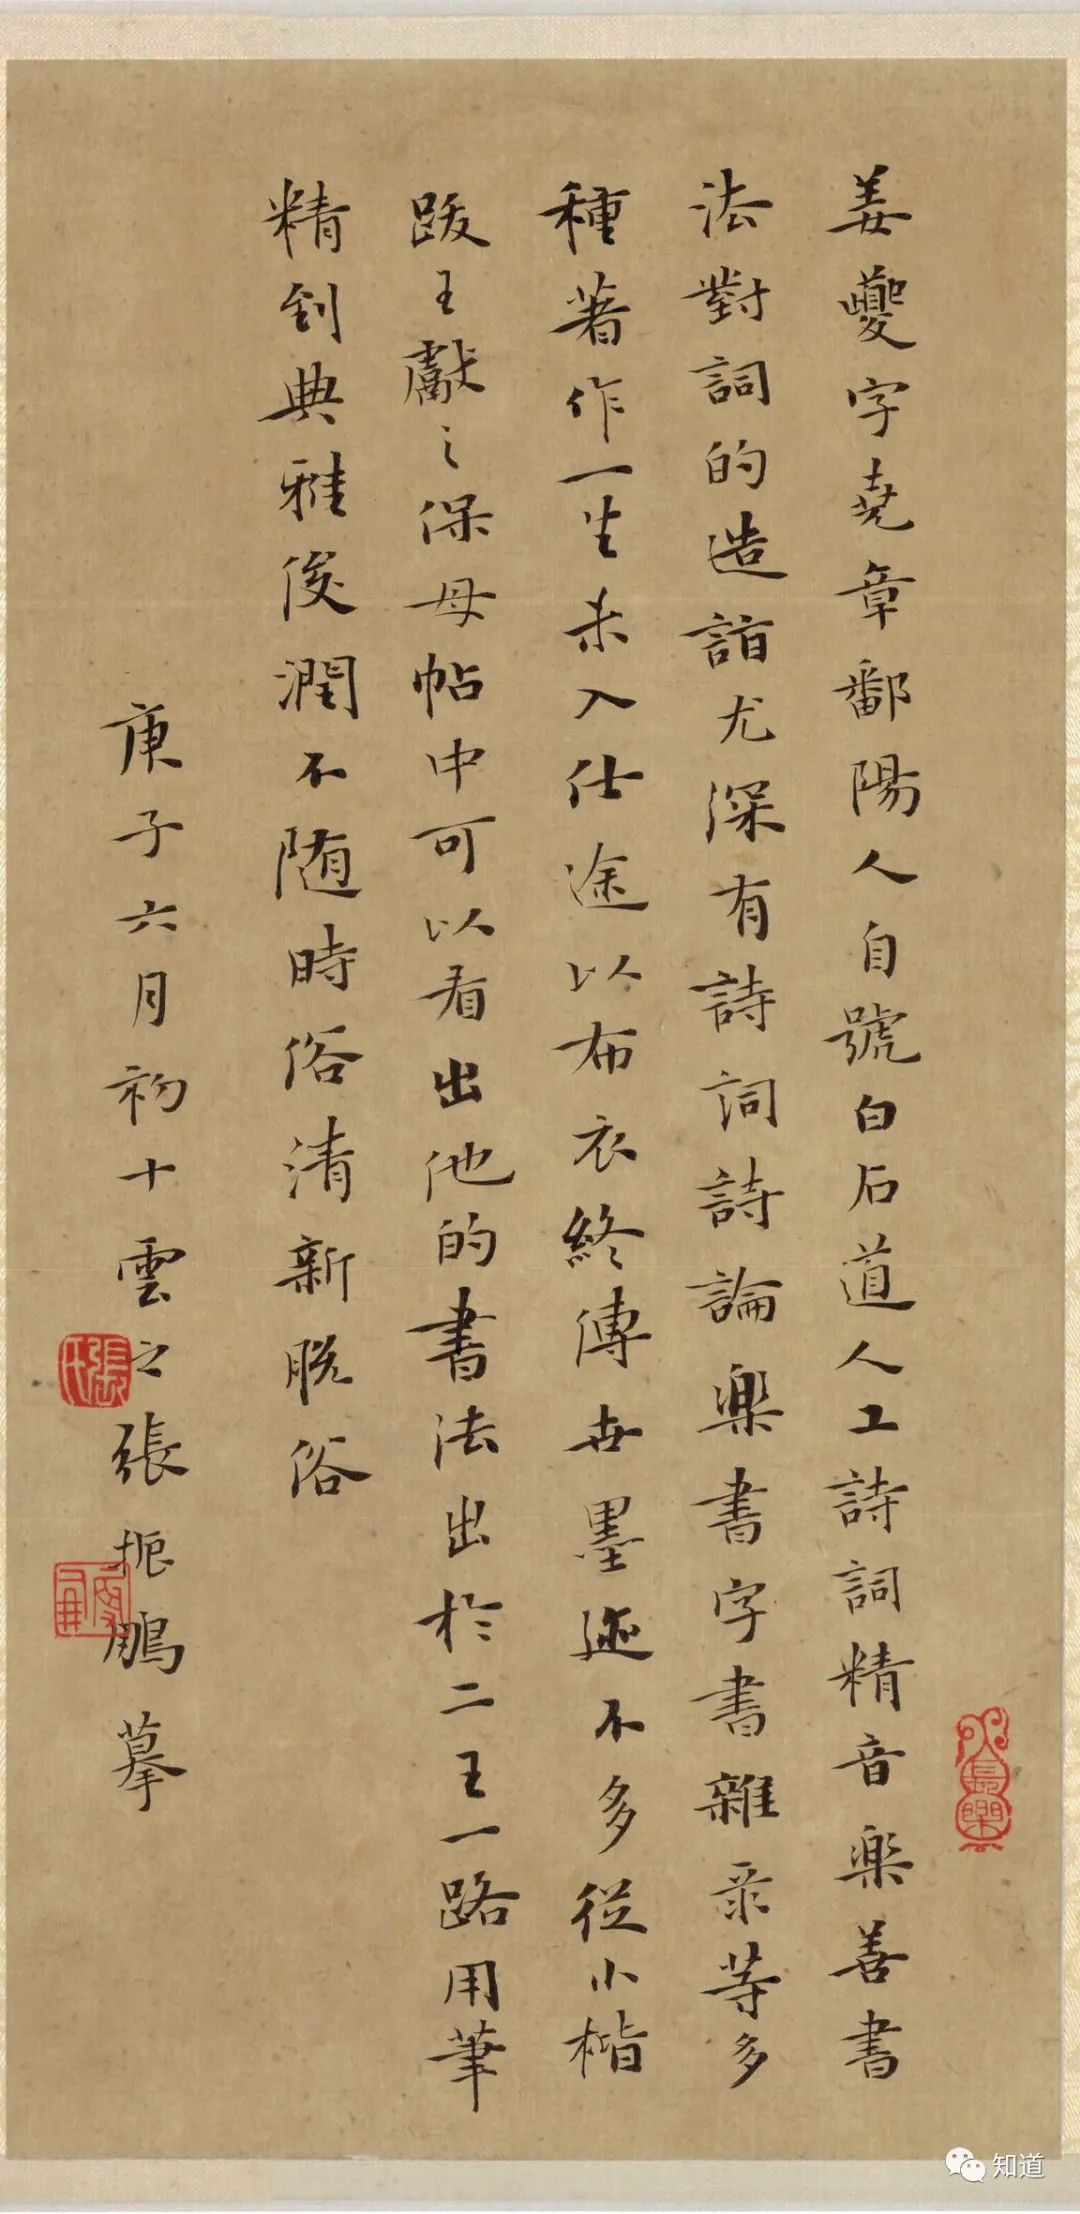 姜夔字堯章鄱陽人自號白石道人工詩詞精音樂善書
法對詞的造詣尤深有詩詞詩論樂書字書雜录等多
種著作一生未入仕途以布衣終傳世墨迹不多從小楷
跋王獻之保母帖中可以看出他的書法出於二王一路用筆
精到典雅俊潤不随時俗清新脱俗
庚子六月初十雲之張振鵬摹
長樂
張氏
知道